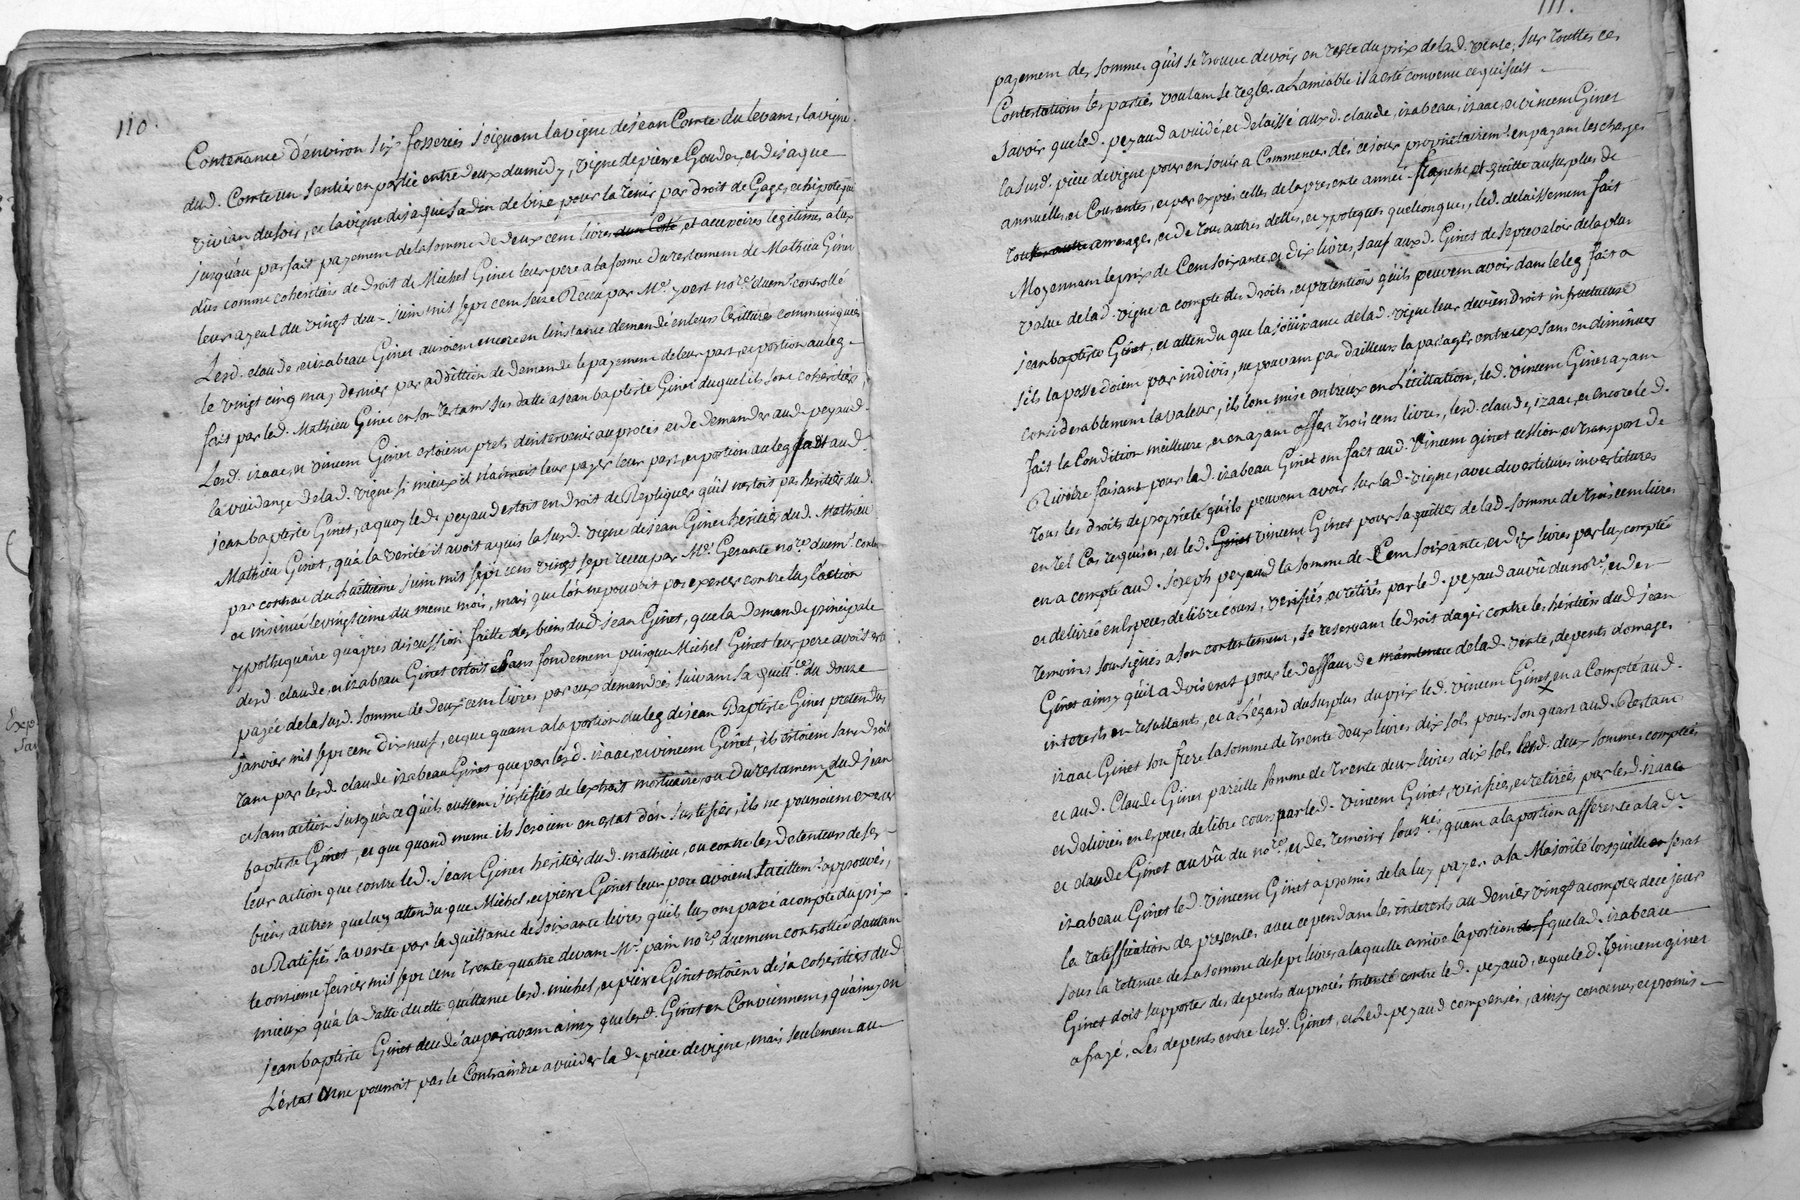 110.
Contenance d'environ six fosserées joignant la vigne de jean Comte du levant, la vigne
dud. Comte un sentier en partie entre deux du midy, vigne de pierre Gourdon, et de jaque
vivian du soir, et la vigne de jaque de bise pour la tenir par droit de Gage, et hipoteque
jusquau parfait payement de la somme de deux cent livres et accessoires legitimes a eux
dus comme coheritiers de droit de Michel Ginet leur pere a la forme du testament de Mathieu Ginet
leur ayeul du vingt deux juin mil sept cent seize Receu par Me. yvert nore. duemt. controllé
Lesd. claude, et izabeau Ginet auroient encore en l'instance demandé en leurs Ecritures communiquées
le vingt cinq may dernier par addition de demande le payement de leur part, et portion au leg
fait par led. Mathieu Ginet en son testamt. sus datté a jean baptiste Ginet duquel ils sont coheritiers,
Lesd. izaac, et vincent Ginet estoient prets d'intervenir au procès et de demander aud. peyaud
la vuidange de lad. vigne si mieux il n'aimoit leur payer leur part, et portion au leg fait aud.
jean baptiste Ginet, a quoy led. peyaud estoit en droit de Repliquer qu'il n'estoit pas heritier dud.
Mathieu Ginet, qu'a la verité il avoit aquis la susd. vigne de jean Ginet heritier dud. Mathieu
par contrat du huitieme juin mil sept cent vingt sept receu par Me. Gerante nore. duemt. contrôlé
et insinué le vingtieme du meme mois, mais que l'on ne pouvoit pas exercer contre luy l'action
ypothequaire qu'apres discussion faitte des biens dud. jean Ginet, que la demande principale
desd. claude, et izabeau Ginet estoit sans fondement puisque Michel Ginet leur pere avoit esté
payée de la susd. somme de deux cent livres par eux demandée suivant sa quittce. du douze
janvier mil sept cent dix neuf, et que quant a la portion du leg de jean Baptiste Ginet pretendus
tant par lesd. claude izabeau Ginet que par lesd. izaac, et vincent Ginet, ils estoient sans droit
et sans action jusqu'a ce qu'ils eussent justifiés de lextrait mortuaire, ou du testament dud. jean
baptiste Ginet, et que quand meme ils seroient en estat d'en justifier, ils ne pourroient exercer
leur action que contre led. jean Ginet heritier dud. mathieu, ou contre les detenteurs de ses
biens autres que luy attendu que Michel, et pierre Ginet leur pere avoient tacittemt. approuvés,
et Ratifiés sa vente par la quittance de soixante livres qu'ils luy ont passé a compte du prix
le onzieme fevrier mil sept cent trente quatre devant Me. pain nore. duement controllée d'autant
mieux qu'a la datte de cette quittance lesd. michel, et pierre Ginet estoient deja coheritiers dud.
jean baptiste Ginet decedé auparavant ainsy que lesd. Ginet en Conviennent, qu'ainsy en
L'estat on ne pourroit pas le Contraindre a vuider lad. piece de vigne, mais seulement au
111.
payement des sommes qu'il se trouve devoir en reste du prix de lad. vente, sur touttes ces
Contestations les parties voulant se regler a L'amiable il a esté convenu ce qui suit
savoir que led. peyaud a vuidé, et delaissé auxd. claude, izabeau, izaac, et vincent Ginet
la susd. piece de vigne pour en jouir a Commencer dès ce jour proprietairemt. en payant les charges
annuelles, et Courantes, et par exprès celles de la presente année, franche, et quitte au surplus de
tous arrerages, et de tous autres dettes, et ypoteques quelconques, led. delaissement fait
Moyennant le prix de Cent soixante, et dix livres, sauf auxd. Ginet de se prevaloir de la plus
value de lad. vigne a compte des droits, et pretentions qu'ils peuvent avoir dans le leg fait a
jean baptiste Ginet, et attendu que la joüissance de lad. vigne leur deviendroit infructueuse
s'ils la possedoient par indivis, ne pouvant par d'ailleurs la partager entre eux sans en diminuer
considerablement la valeur, ils l'ont mise entreux en Licittation, led. vincent Ginet ayant
fait la Condition meilleure, et en ayant offert trois cent livres, lesd. claude, izaac, et encore led.
Riviere faisant pour lad. izabeau Ginet ont fait aud. Vincent ginet cession et transport de
tous les droits de proprieté qu'ils peuvent avoir sur lad. vigne, avec devestitures investitures
en tel cas requises, et led. Ginet vincent Ginet pour sa quitte de lad. somme de trois cent livres
en a compté aud. joseph peyaud la somme de Cent soixante, et dix livres par luy comptée
et delivrée en Especes de libre cours, verifiés, et retirés par led. peyaud au vû du nore. et des
temoins soussignés a son contentement, se reservant le droit d'agir contre les heritiers dud. jean
Ginet ainsy qu'il advisera pour le deffaut de maintenue de lad. vente, depents domages
interests en resultants, et a L'egard du surplus du prix led. vincent Ginet en a Compté aud.
izaac Ginet son frere la somme de trente deux livres dix sols pour son quart aud. Restant
et aud. Claude Ginet pareille somme de trente deux livres dix sols lesd. deux sommes comptées
et delivrées en especes de libre cours par led. Vincent Ginet, verifiée, et retirée par lesd. izaac
et claude Ginet au vû du nore. et des temoins sousnés, quant a la portion afferente a lad.
izabeau Ginet led. vincent Ginet a promis de la luy payer a sa Majorité lorsqu'elle fera
la ratiffication des presentes avec cependant les interests au denier vingt a compter de ce jour
sous la retenue de La somme de sept livres a laquelle arrive La portion que lad. izabeau
Ginet doit supporter des depents du procés intenté contre led. peyaud, et que led. Vincent ginet
a frayé, Les depents entre lesd. Ginet, et Led. peyaud compensés, ainsy convenu, et promis